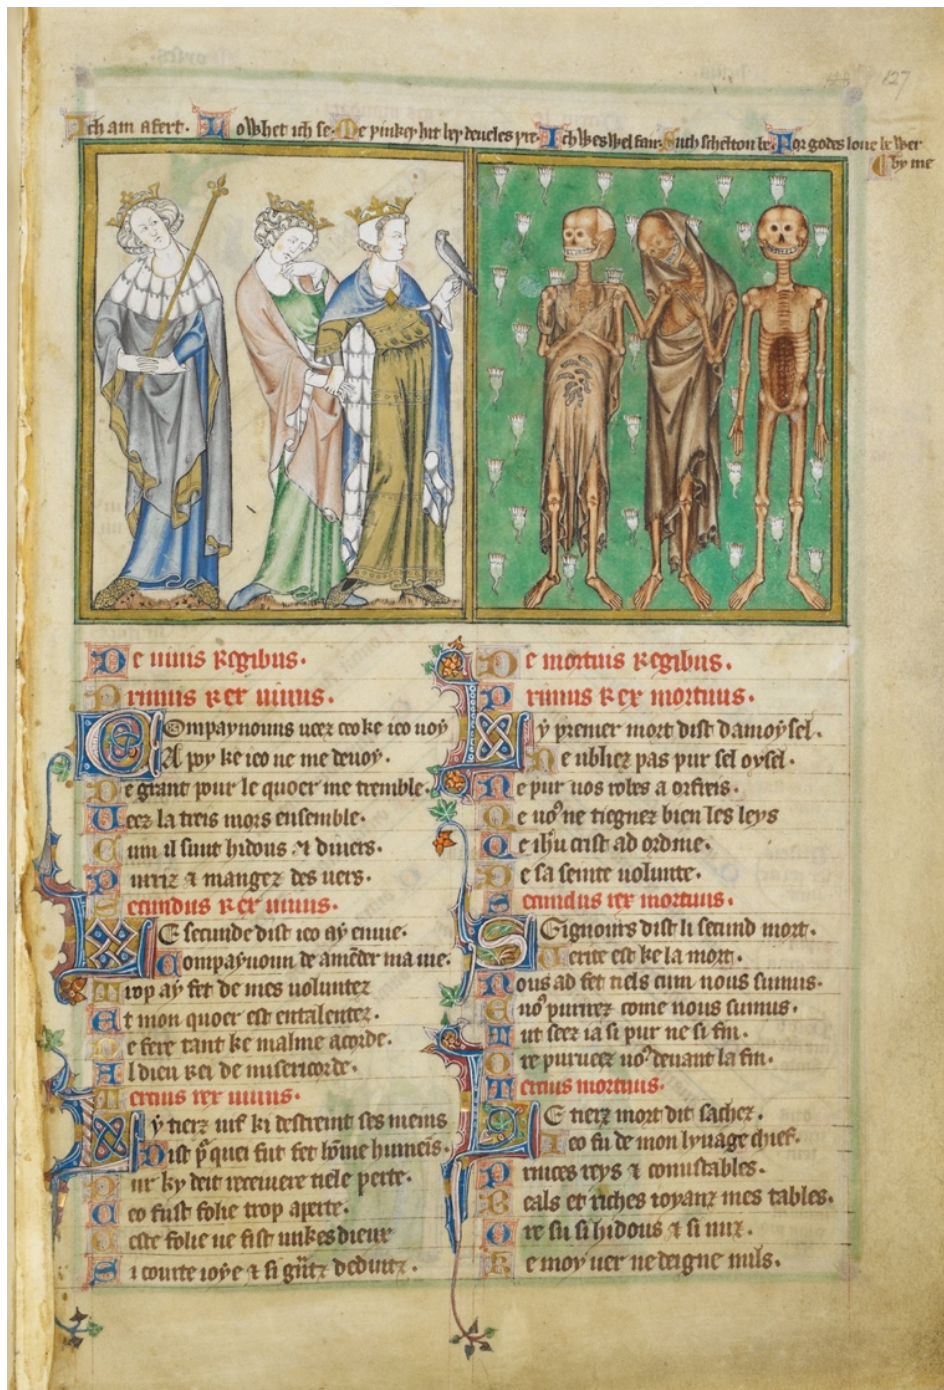 127
Ich am afert. Lo whet ich se. Me þinkeþ hit beþ deueles þre. Ich wes wel fair. Such scheltou be. For godes loue be wer
by me
De uiuis regibus.
Primus rex uiuus.
Compaynouns ueez ceo ke ieo uoy
A poy ke ieo ne me deuoy.
De grant pour le quoer me tremble.
Ueez la treis mors ensemble.
Cum il sunt hidous & diuers.
Purriz & mangez des uers.
Secundus rex uiuus.
Le secunde dist ieo ay enuie.
Compaynoun de amender ma uie.
Trop ay fet de mes uoluntez
Et mon quoer est entalentez.
De fere tant ke malme acorde.
Al dieu rei de misericorde.
Tercius rex uiuus.
Ly tierz uif ki destreint ses meins
Dist pur quei fut fet homme humeins.
Pur ky deit receiuere tiele perte.
Ceo fust folie trop aperte.
Ceste folie ne fist unkes dieux
Si courte ioye & si granz deduitz.
De mortuis regibus.
Primus rex mortuus.
Ly premer mort dist damoysel.
Ne ubliez pas pur sel oysel.
Ne pur uos robes a orfreis.
Qe uous ne tiegnez bien les leys
Qe ihu crist ad ordine.
De sa seinte uolunte.
Secundus rex mortuus.
Seignours dist li secund mort.
Uerite est ke la mort.
Nous ad fet tiels cum nous sumus.
E uous purrez come nous sumus.
Tut seez ia si pur ne si fin.
Ore purueez uous deuant la fin.
Tercius mortuus.
Le tierz mort dit sachez.
Ieo fu de mon lynage chief.
Princes reys & conustables.
Beals et riches ioyanz mes tables.
Ore su si hidous & si nuz.
Ke moy uer ne deigne nuls.